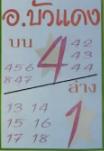 อ.บัวแดง
บน 4 42
43
456 44
847
ล่าง
13 14
15 16 1
17 18